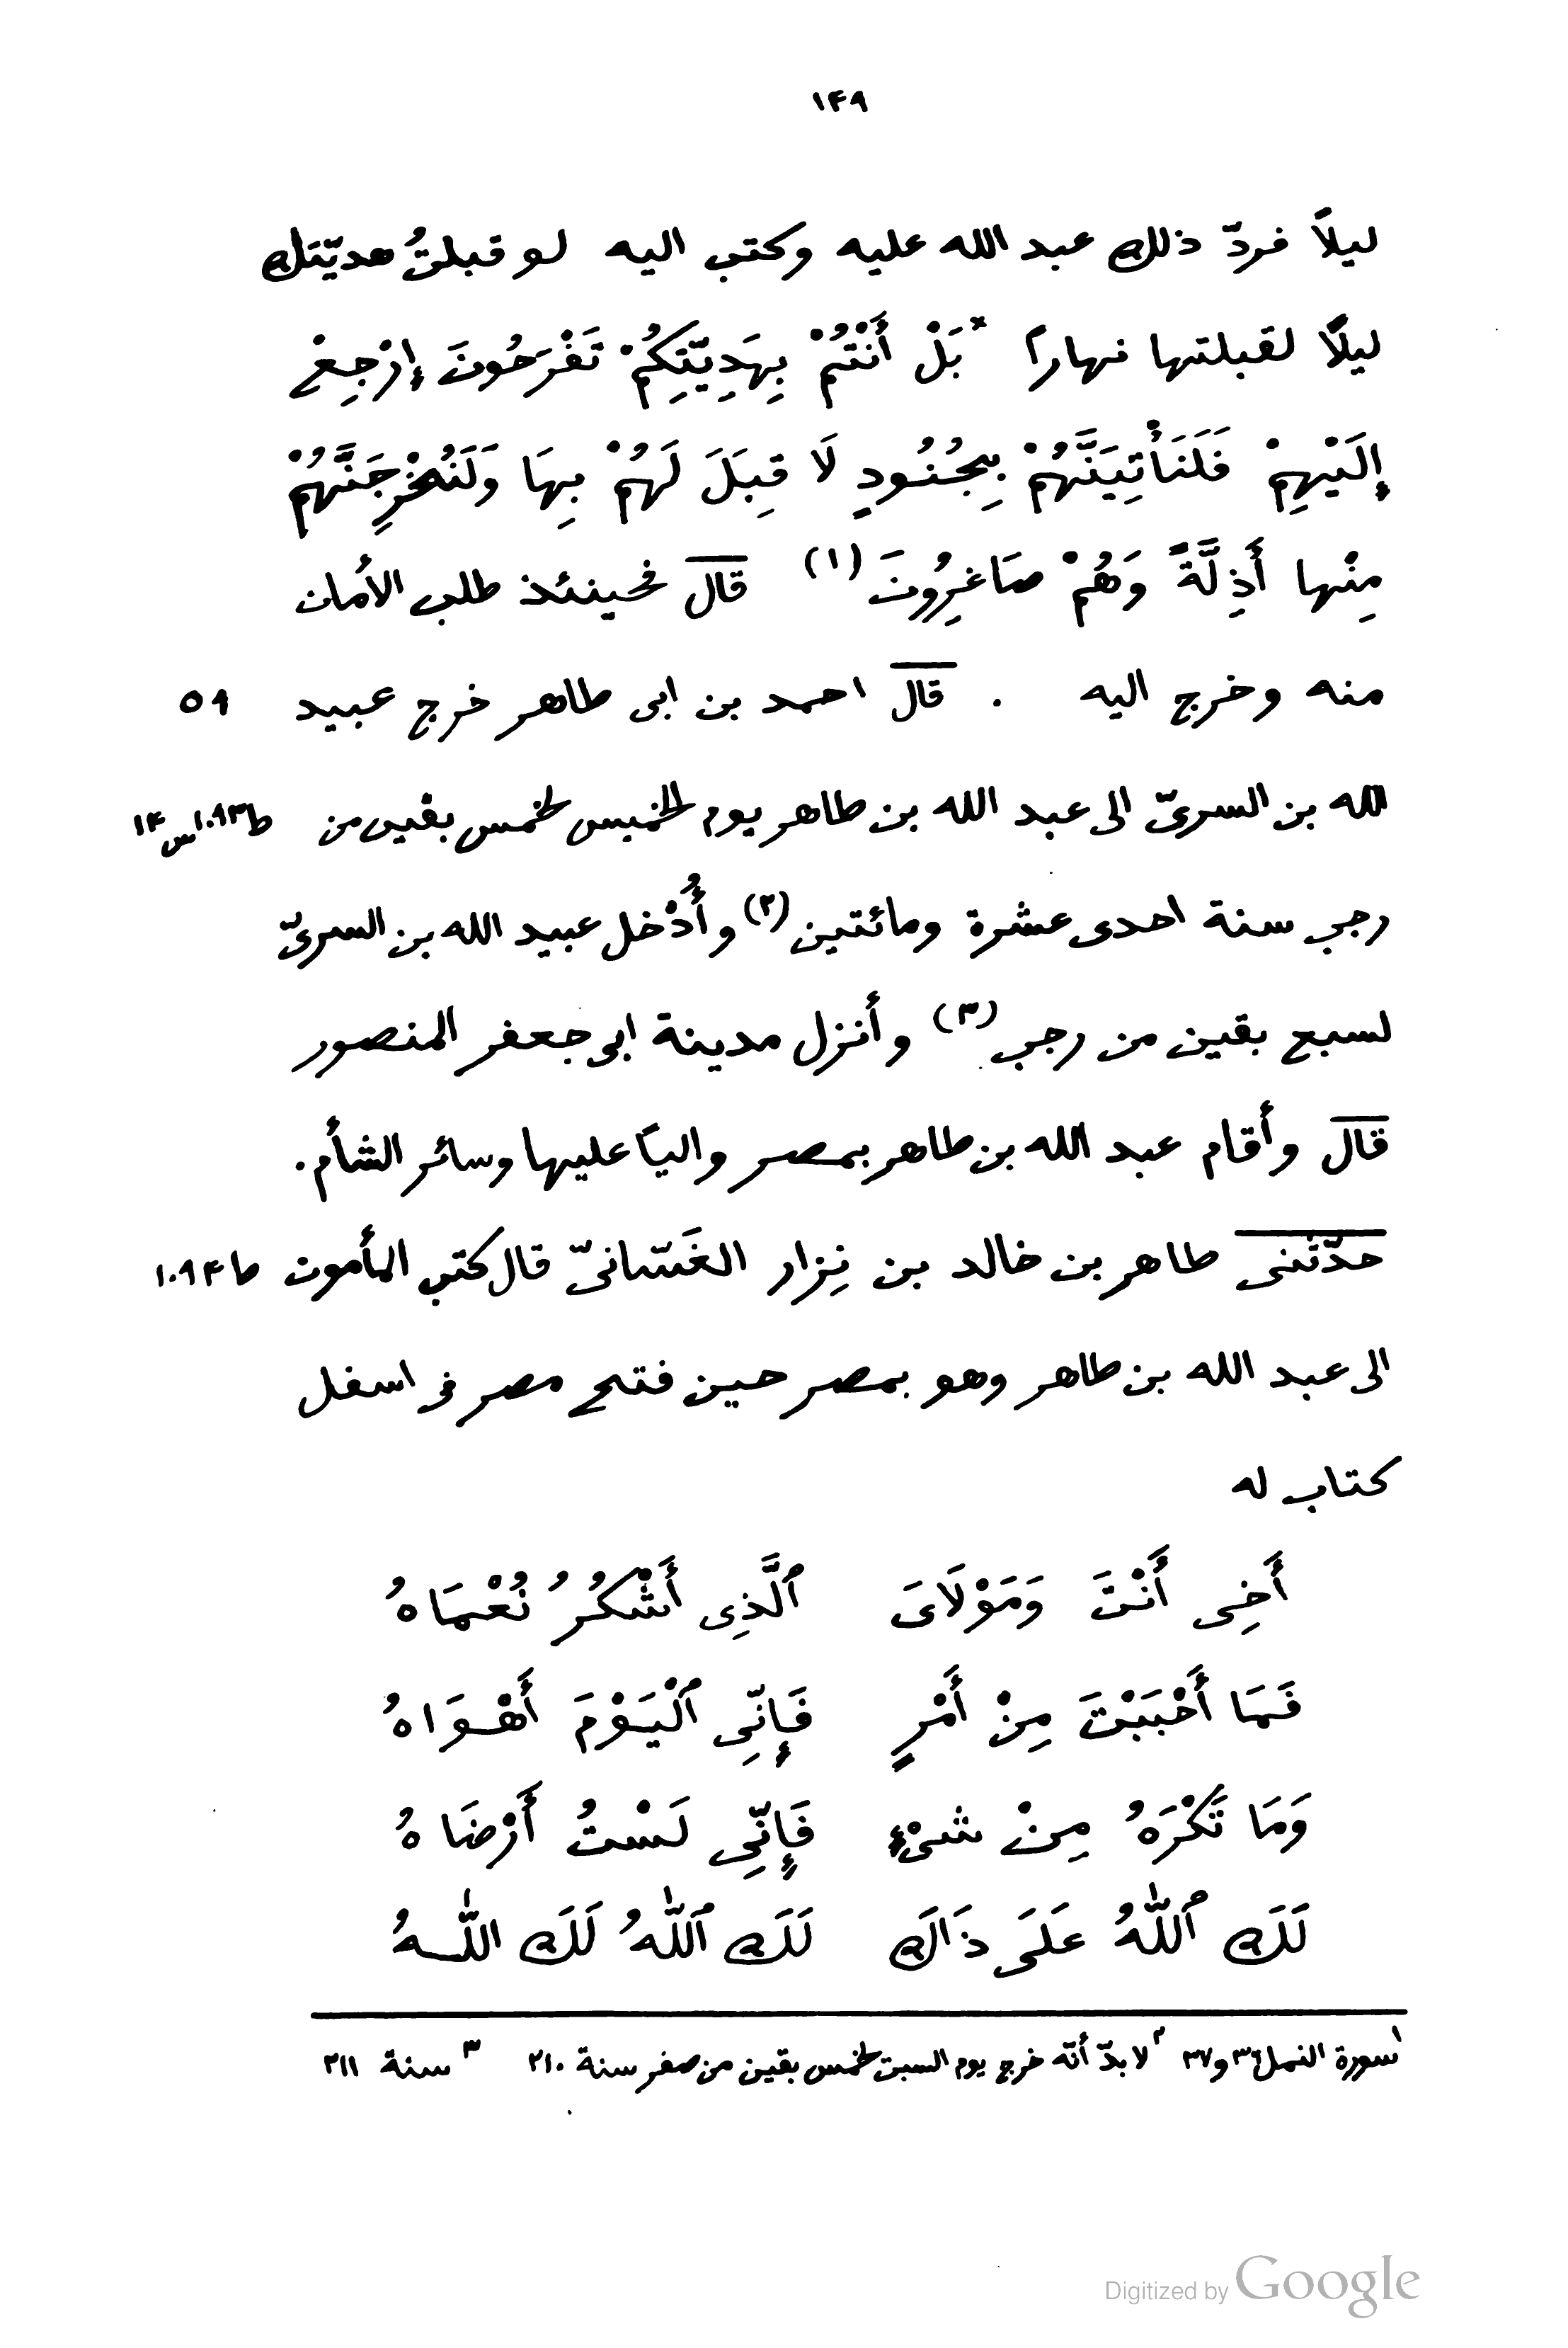 ١٤٩
ليلاً فردّ ذلك عبد الله عليه وكتب اليه لو قبلتُ هديّتك
ليلًا لقبلتها نهاراً * بَلْ أَنْتُمْ بِهَدِيَّتِكُمْ تَفْرَحُونَ إِرْجِعْ
إِلَيْهِمْ فَلَنَأْتِيَنَّهُمْ بِجُنُودٍ لَا قِبَلَ لَهُمْ بِهَا وَلَنُخْرِجَنَّهُمْ
مِنْها أَذِلَّةً وَهُمْ صَاغِرُونَ (١) قال فحينئذ طلب الأمان
منه وخرج اليه . قال احمد بن ابى طاهر خرج عبيد ٥٩
الله بن السرىّ الى عبد الله بن طاهر يوم الخميس لخمس بقين من ط١٠٩٣س١٤
رجب سنة احدى عشرة ومائتين (٢) وأُدْخل عبيد الله بن السرىّ
لسبع بقين من رجب (٣) وأنزل مدينة ابى جعفر المنصور
قال وأقام عبد الله بن طاهر بمصر والياً عليها وسائر الشأم.
حدّثنى طاهر بن خالد بن نِزار الغَسّانىّ قال كتب المأمون ط١٠٩٤
الى عبد الله بن طاهر وهو بمصر حين فتح مصر فى اسفل
كتاب له
أَخِى أَنْتَ وَمَوْلَاىَ ٱلَّذِى أَشْكُرُ نُعْمَاهُ
فَمَا أَحْبَبْتَ مِنْ أَمْرٍ فَإِنِّى ٱلْيَوْمَ أَهْوَاهُ
وَمَا تَكْرَهُ مِنْ شَىْءٍ فَإِنِّى لَسْتُ أَرْضَاهُ
لَكَ ٱللّٰهُ عَلَى ذَاكَ لَكَ ٱللّٰهُ لَكَ اللّٰهُ
١ سورة النمل ٣٦ و٣٧ ٢ لا بدّ أنّه خرج يوم السبت لخمس بقين من صفر سنة ٢١٠ ٣ سنة ٢١١
Digitized by Google